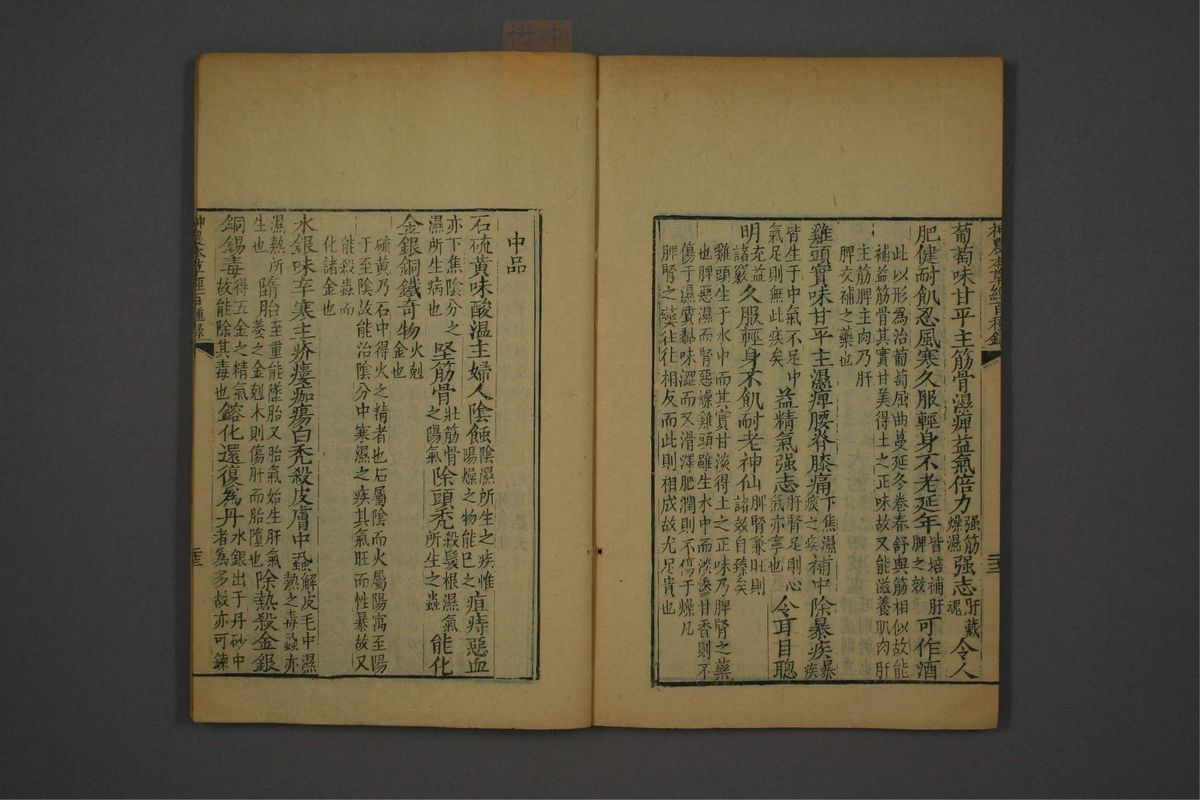 神農本草經百種錄
葡萄味甘平主筋骨濕痹益氣倍力强筋燥濕强志肝藏魂令人
肥健耐飢忍風寒久服輕身不老延年皆培補肝脾之效可作酒
此以形為治葡萄屈曲蔓延冬卷春舒與筋相似故能
補益筋骨其實甘美得土之正味故又能滋養肌肉肝
主筋脾主肉乃肝
脾交補之藥也
雞頭實味甘平主濕痹腰脊膝痛下焦濕痰之疾補中除暴疾暴疾
皆生于中氣不足中氣足則無此疾矣益精氣强志肝腎足則心氣亦寧也令耳目聰
明充益諸竅久服輕身不飢耐老神仙脾腎兼旺則諸效自臻矣
雞頭生于水中而其實甘淡得土之正味乃脾腎之藥
也脾惡濕而腎惡燥雞頭雖生水中而淡滲甘香則不
傷于濕質黏味澀而又滑澤肥潤則不傷于燥凡
脾腎之藥往往相反而此則相成故尤足貴也
中品
石硫黃味酸溫主婦人陰蝕陰濕所生之疾惟陽燥之物能已之疽痔惡血
亦下焦陰分之濕所生病也堅筋骨壯筋骨之陽氣除頭禿殺髮根濕氣所生之蟲能化
金銀銅鐵奇物火剋金也
硫黃乃石中得火之精者也石屬陰而火屬陽寓至陽
于至陰故能治陰分中寒濕之疾其氣旺而性暴故又
能殺蟲而
化諸金也
水銀味辛寒主疥瘻痂瘍白禿殺皮膚中蝨解皮毛中濕熱之毒蝨亦
濕熱所生也墮胎胎至重能墜胎又胎氣始生肝氣養之金剋木則傷肝而胎墮也除熱殺金銀
銅錫毒得五金之精氣故能除其毒也鎔化還復為丹水銀出于丹砂中者為多故亦可鍊
神農本草經百種錄